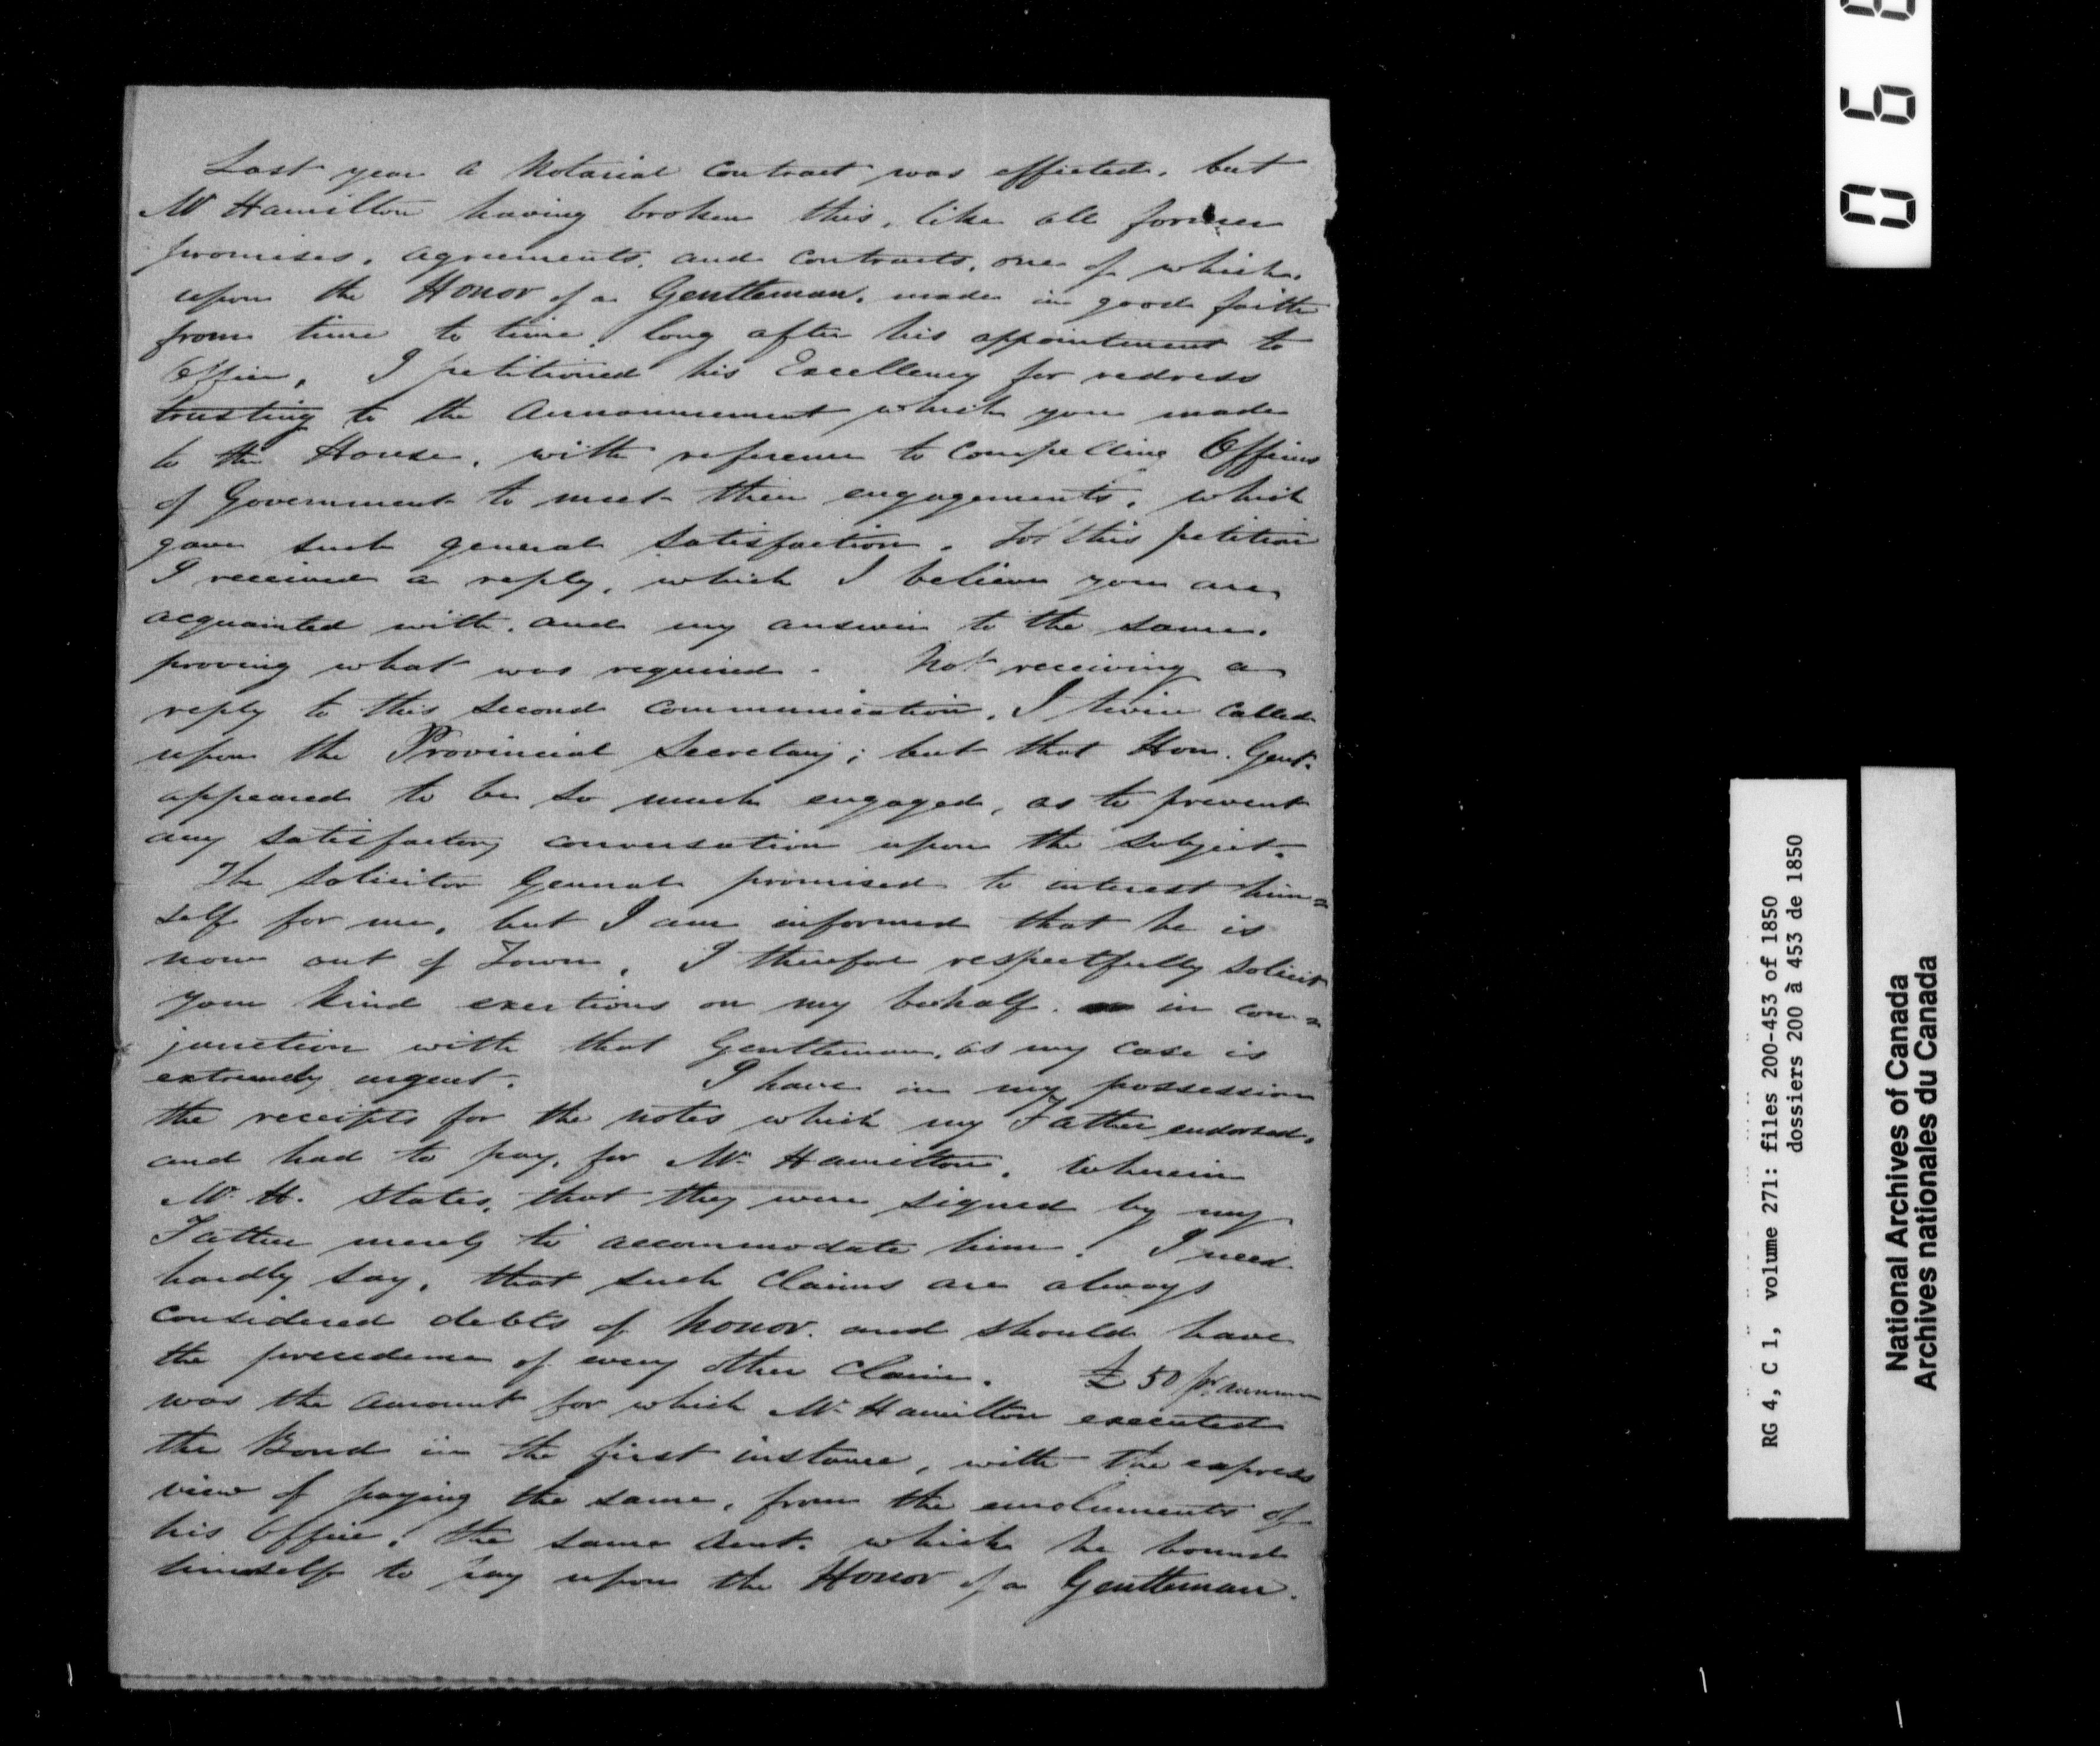 Last year a Notarial Contract was effected, but
Mr Hamilton having broken this, like all former
promises, agreements, and contracts, one of which,
upon the Honor of a Gentleman, made in good faith
from time to time, long after his appointment to
Office, I petitioned his Excellency for redress
trusting to the Announcement which you made
to the House, with reference to compelling Officers
of Government to meet their engagements, which
gave such general satisfaction. To this petition
I received a reply, which I believe you are
acquainted with, and my answer to the same,
proving what was required. Not receiving a
reply to this second communication, I twice called
upon the Provincial Secretary; but that Hon. Gent.
appeared to be so much engaged, as to prevent
any satisfactory conversation upon the subject.
The Solicitor General promised to interest him=
self for me, but I am informed that he is
now out of Town, I therefore respectfully solicit
your kind exertions on my behalf, in con=
junction with that Gentleman, as my case is
extremely urgent. I have in my possession
the receipts for the notes which my Father endorsed,
and had to pay, for Mr Hamilton, wherein
Mr. H. states, that they were signed by my
Father merely to accommodate him! I need
hardly say, that such claims are always
considered debts of honor, and should have
the precedence of every other claim. £50 pr. annum
was the amount for which Mr Hamilton executed
the Bond in the first instance, with the express
view of paying the same, from the emoluments of
his Office! the same which he bound
himself to pay upon the Honor of a Gentleman.
0 6 8
RG 4, C 1, volume 271: files 200-453 of 1850
dossiers 200 à 453 de 1850
National Archives of Canada
Archives nationales du Canada